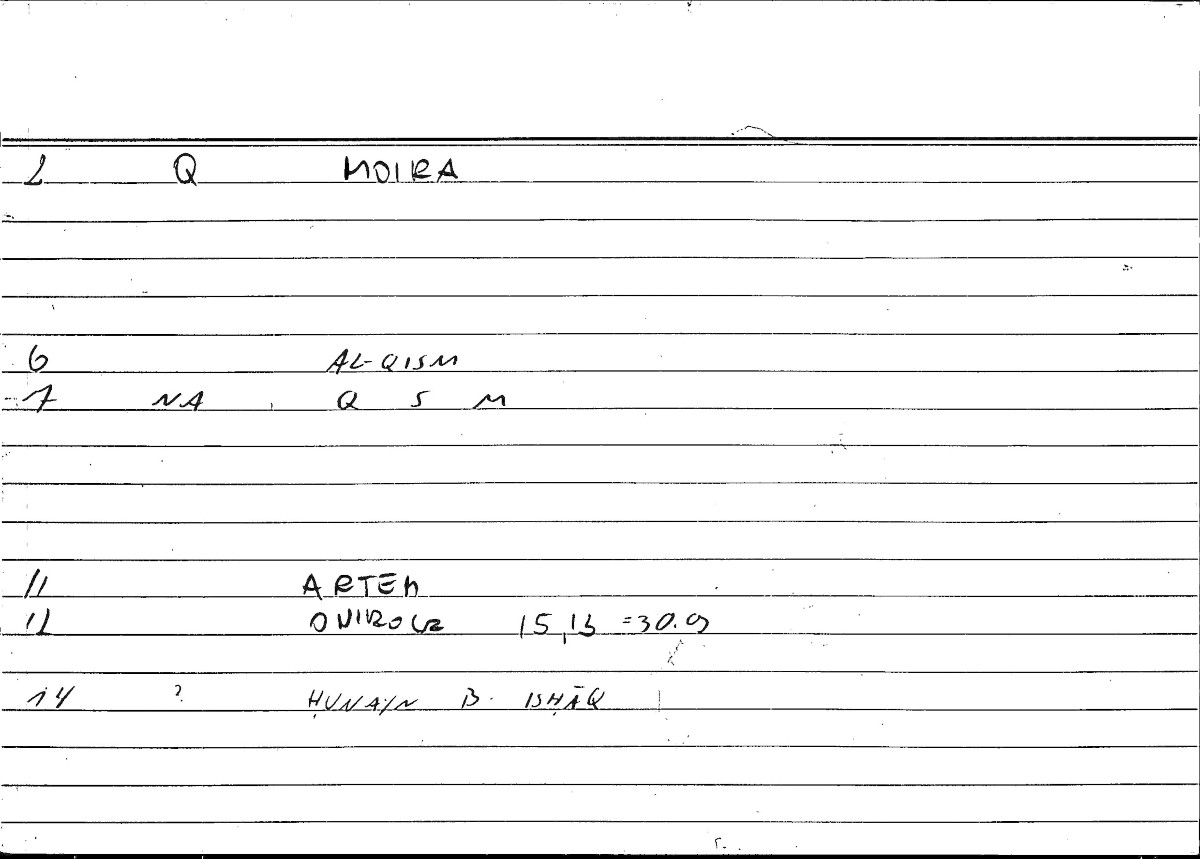 2 Q MOIRA
6 AL-QISM
7 NA Q S M
11 ARTEM
12 ONIROCR 15,13 = 30.9
14 ? ḤUNAYN B. ISḤĀQ